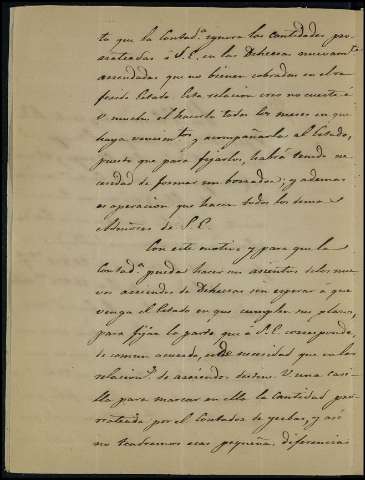 to que la Contad.a ignora las cantidades pro-
rrateadas á S.E. en las Dehesas nuevam.te
arrendadas que no bienen cobradas en el re-
ferido Estado. Esta relacion creo no cueste á
V. mucho el hacerla todos los meses en que
haya vencim.tos y acompañarla al Estado,
puesto que para fijarlos, habrá tenido ne-
cesidad de formar un borrador; y ademas
es operacion que hacen todos los demas
Admores de S.E.
Con este motivo y para que la
Contad.a pueda hacer los asientos de los nue-
vos arriendos de Dehesas sin esperar á que
venga el Estado en que cumplen sus plazos,
para fijar la parte que á S.E. corresponde,
de comun acuerdo, es de necesidad que en las
relacion.s de arriendos, V. una casi-
lla para marcar en ella la cantidad pro-
rrateada por el Contador de yerbas, y así
no tendremos esas pequeñas diferencias